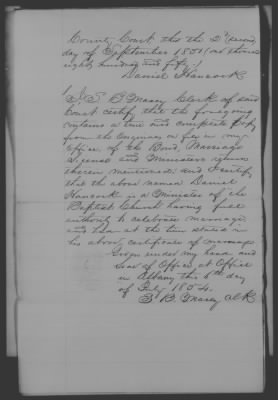 County Court this the 2d (second)
day of September 1850 (one thousand
eight hundred and fifty)
Daniel Hancock
I, S. B. Maxey Clerk of said
Court certify that the foregoing
contains a true and complete copy
from the originals on file in my
office, of the Bond, Marriage
License and Ministers return
therein mentioned and I certify
that the above named Daniel
Hancock is a Minister of the
Baptist Church having full
authority to celebrate marriage
and was at the time stated in
his above certificate of marriage
Given under my hand and
Seal of Office, at Office
in Albany this 6th day
of July 1854.
S. B. Maxey Clk